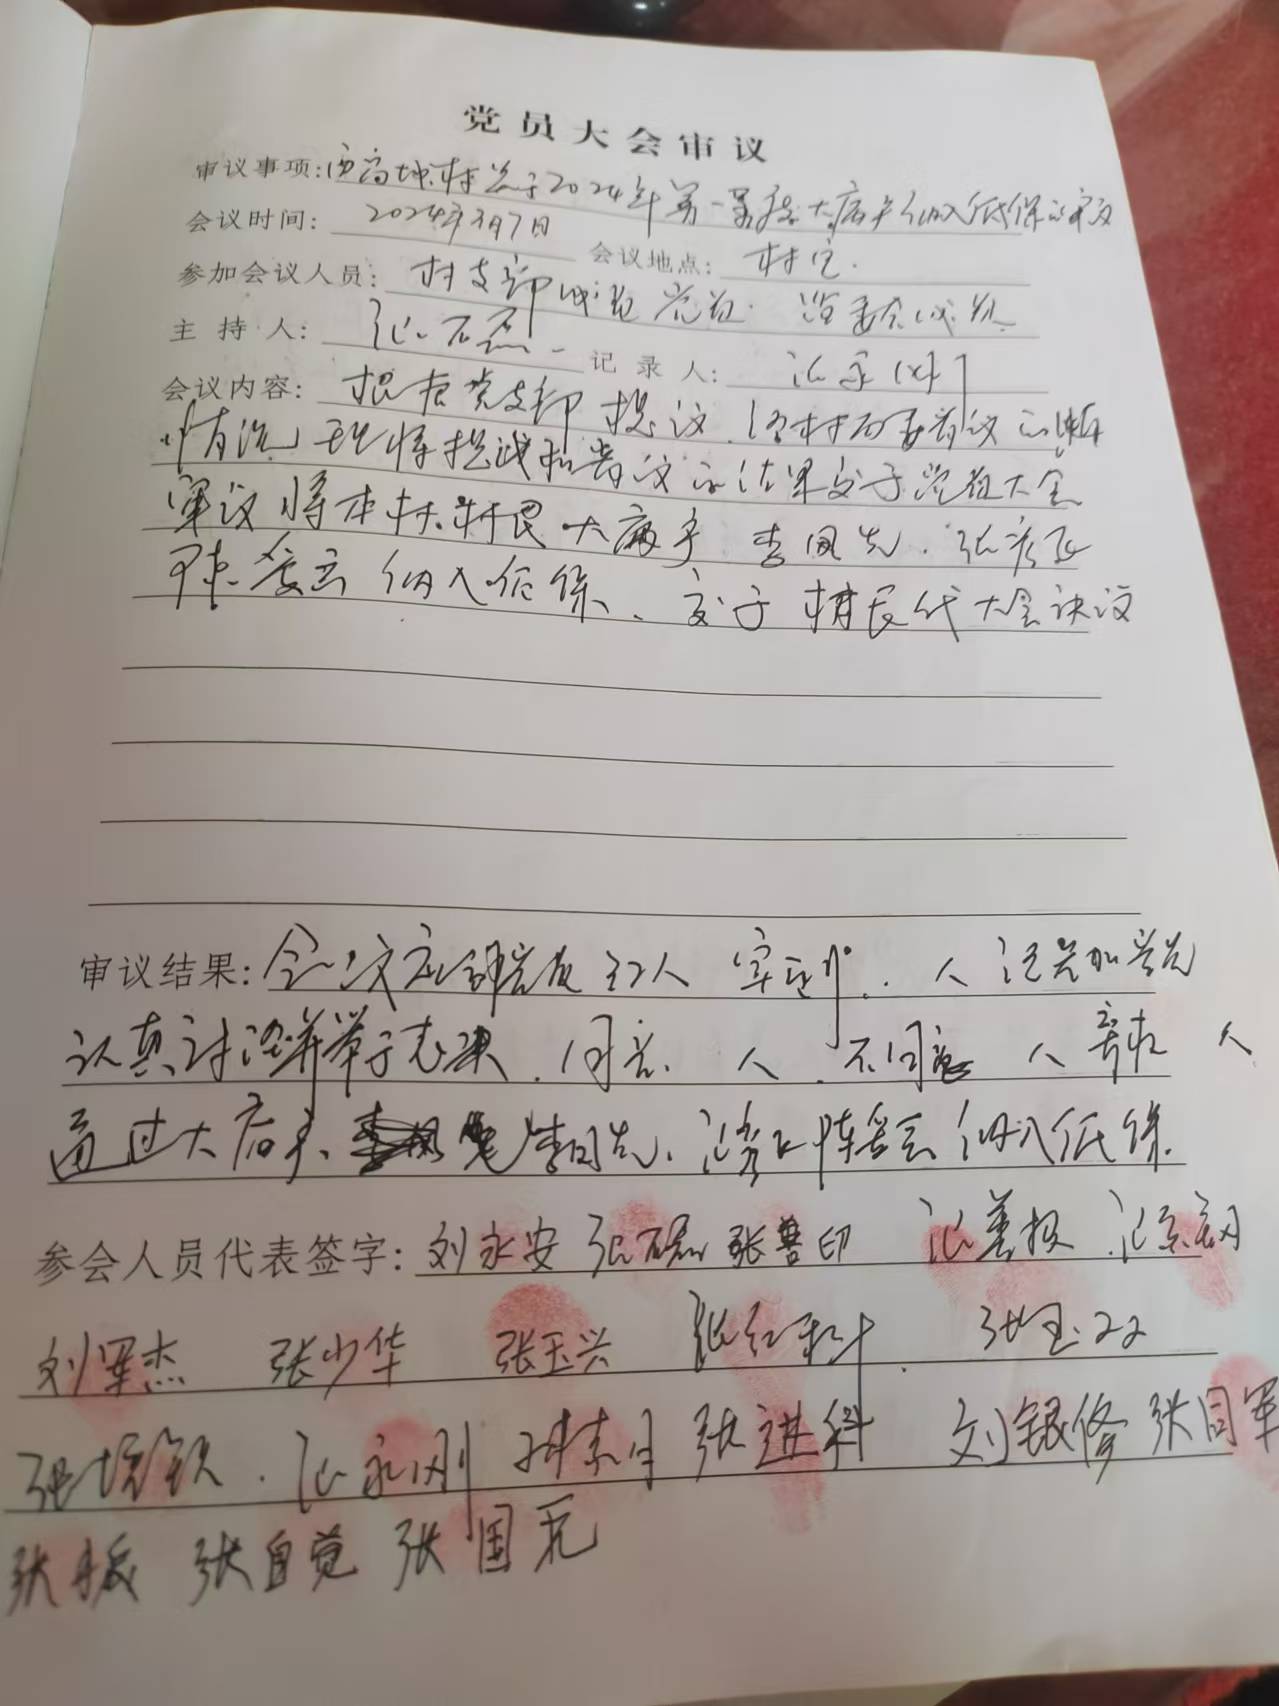 党员大会审议
审议事项:西高城村关于2024年第一季度大病户纳入低保的审议
会议时间: 2024年3月7日 会议地点: 村室.
参加会议人员: 村支部成员 党员. 监委会成员
主持人: 张石磊 记录人: 张永刚
会议内容: 根据党支部提议、经村两委商议的
情况 现将提议和商议的结果交于党员大会
审议将本村村民大病户 李凤先、张彦
陈爱云 纳入低保、交于村民代大会决议
审议结果: 会议应到党员32人 实到 人 经参加党员
认真讨论并举手表决、同意 人、不同意 人 弃权 人
通过大病户、李凤先、张彦 陈爱云 纳入低保.
参会人员代表签字: 刘永安 张石磊 张善印 张善
刘军杰 张少华 张玉兴 张红科 张玉
张 张永刚 张进科 刘银修 张国军
张 张自觉 张国